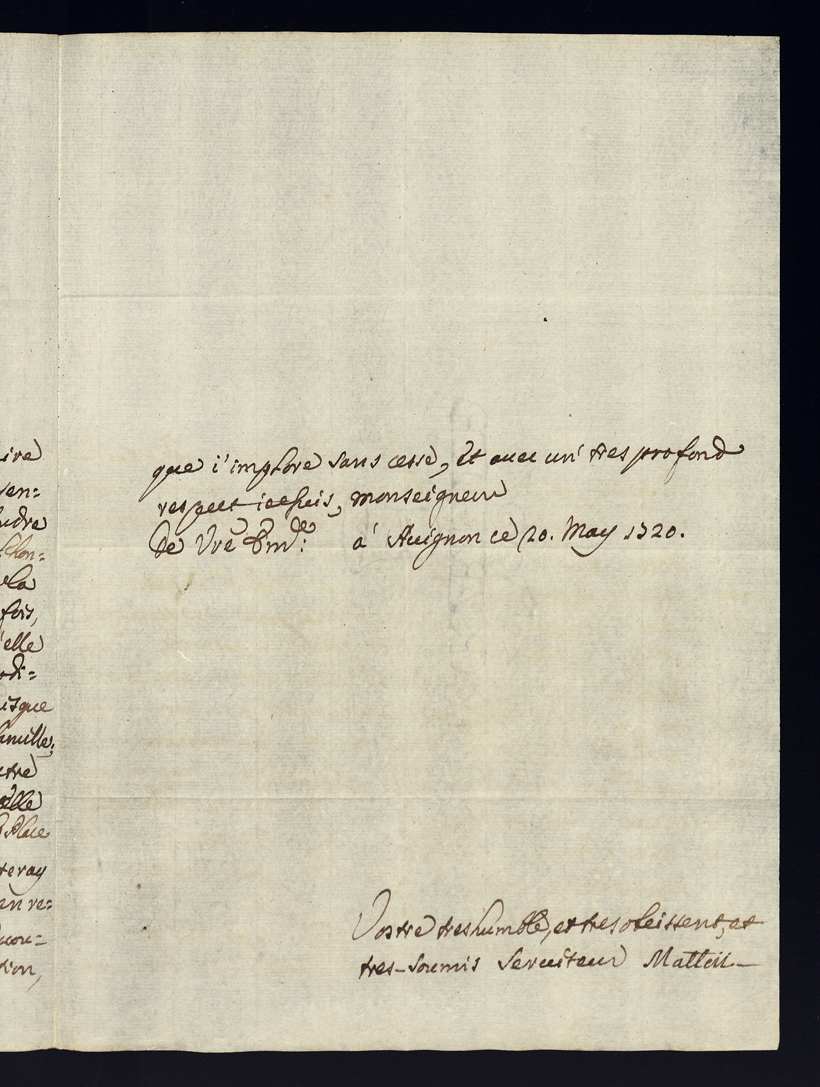 ire
ven=
ndre
=
ela
fois,
elle
odi=
isque
famille,
utre
elle
place
teray
en re=
cou=
tion,
que i'implore sans cesse, Et auec un' tres profond
respect ie suis, monseigneur
De Vre Em.de: a' Auignon ce 20. May 1720.
Vostre tres humble, et tres obeissent, et
tres-soumis Seruiteur Matteii